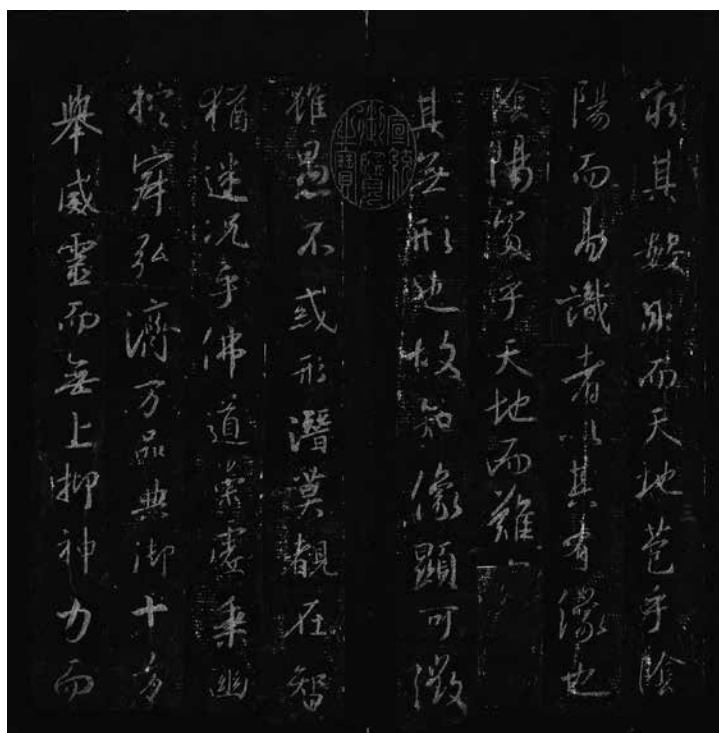 窮其數然而天地苞乎陰
陽而易識者以其有像也
陰陽處乎天地而難
其無形也故知像顯可徵
宣統
御覽
之寶
雖愚不惑形潛莫覩在智
猶迷況乎佛道崇虛乘幽
控寂弘濟万品典御十方
舉威靈而無上抑神力而